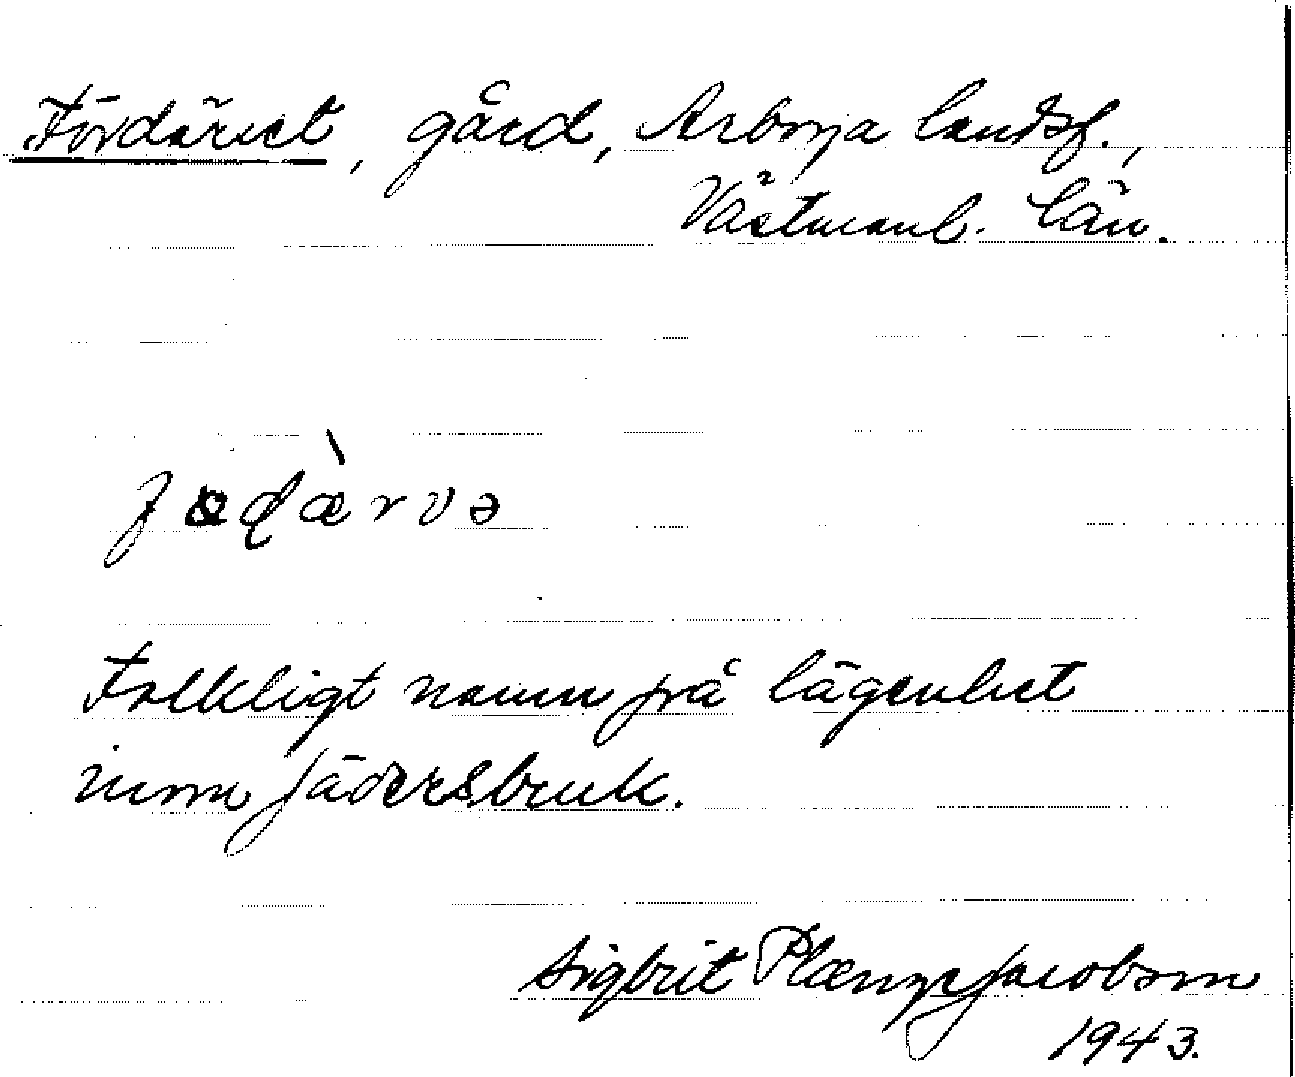 Fördärvet, gård, Arboga landsf.,
Västmanl. län.
Folkligt namn på lägenhet
inom Jädersbruk.
Sigbrit Plænge Jacobson
1943.